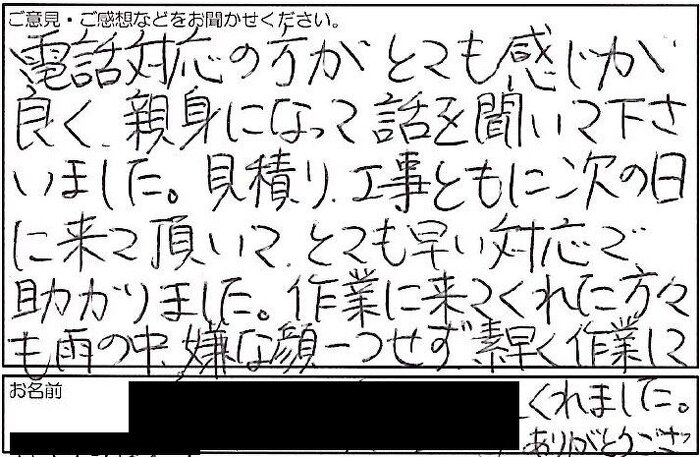 ご意見・ご感想などをお聞かせください。
電話対応の方が とても感じが
良く、親身になって話を聞いて下さ
いました。見積り、工事ともに次の日
に来て頂いて、とても早い対応で
助かりました。作業に来てくれた方々
も雨の中、嫌な顔一つせず素早く作業して
お名前
くれました。
ありがとうござっ